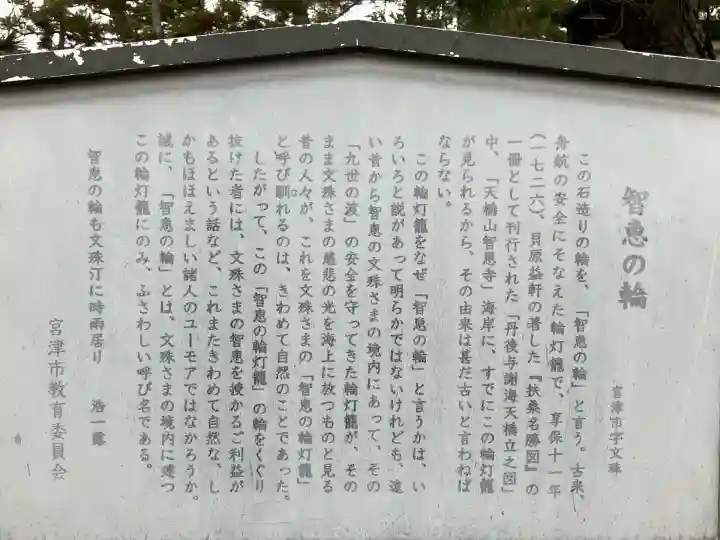 智恵の輪
宮津市字文珠
この石造りの輪を、「智恵の輪」と言う。古来、
舟航の安全にそなえた輪灯籠で、享保十一年
(一七二六)、貝原益軒の著した『扶桑名勝図』の
一冊として刊行された「丹後与謝海天橋立之図」
中、「天橋山智恩寺」海岸に、すでにこの輪灯籠
が見られるから、その由来は甚だ古いと言わねば
ならない。
この輪灯籠をなぜ「智恵の輪」と言うかは、い
ろいろと説があって明らかではないけれども、遠
い昔から智恵の文殊さまの境内にあって、その
「九世の渡」の安全を守ってきた輪灯籠が、その
まま文殊さまの慈悲の光を海上に放つものと見る
昔の人々が、これを文殊さまの「智恵の輪灯籠」
と呼び馴れるのは、きわめて自然のことであった。
したがって、この「智恵の輪灯籠」の輪をくぐり
抜けた者には、文殊さまの智恵を授かるご利益が
あるという話など、これまたきわめて自然な、し
かもほほえましい諸人のユーモアではなかろうか。
誠に、「智恵の輪」とは、文殊さまの境内に建つ
この輪灯籠にのみ、ふさわしい呼び名である。
智恵の輪も文珠汀に時雨居り 浩一露
宮津市教育委員会